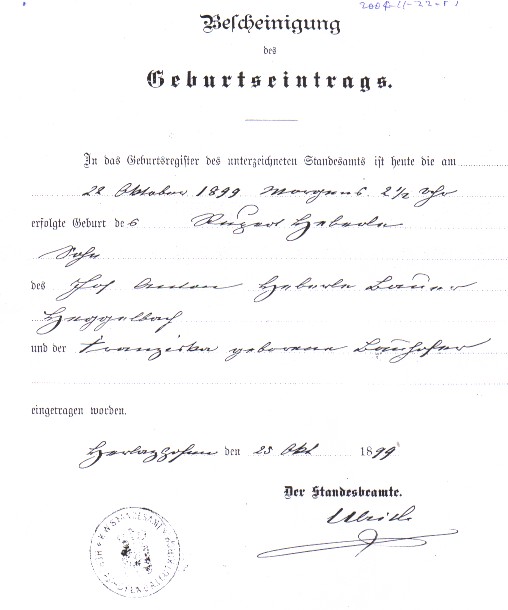 Bescheinigung
des
Geburtseintrags.
In das Geburtsregister des unterzeichneten Standesamts ist heute die am
22 Oktober 1899 Morgens 2 1/2 Uhr
erfolgte Geburt des Rupert Heberle
Sohn
des Jos Anton Heberle Bauer
Heggelbach
und der Franziska geborene
eingetragen worden.
Herlazhofen den 23 Okt 1899
Der Standesbeamte.